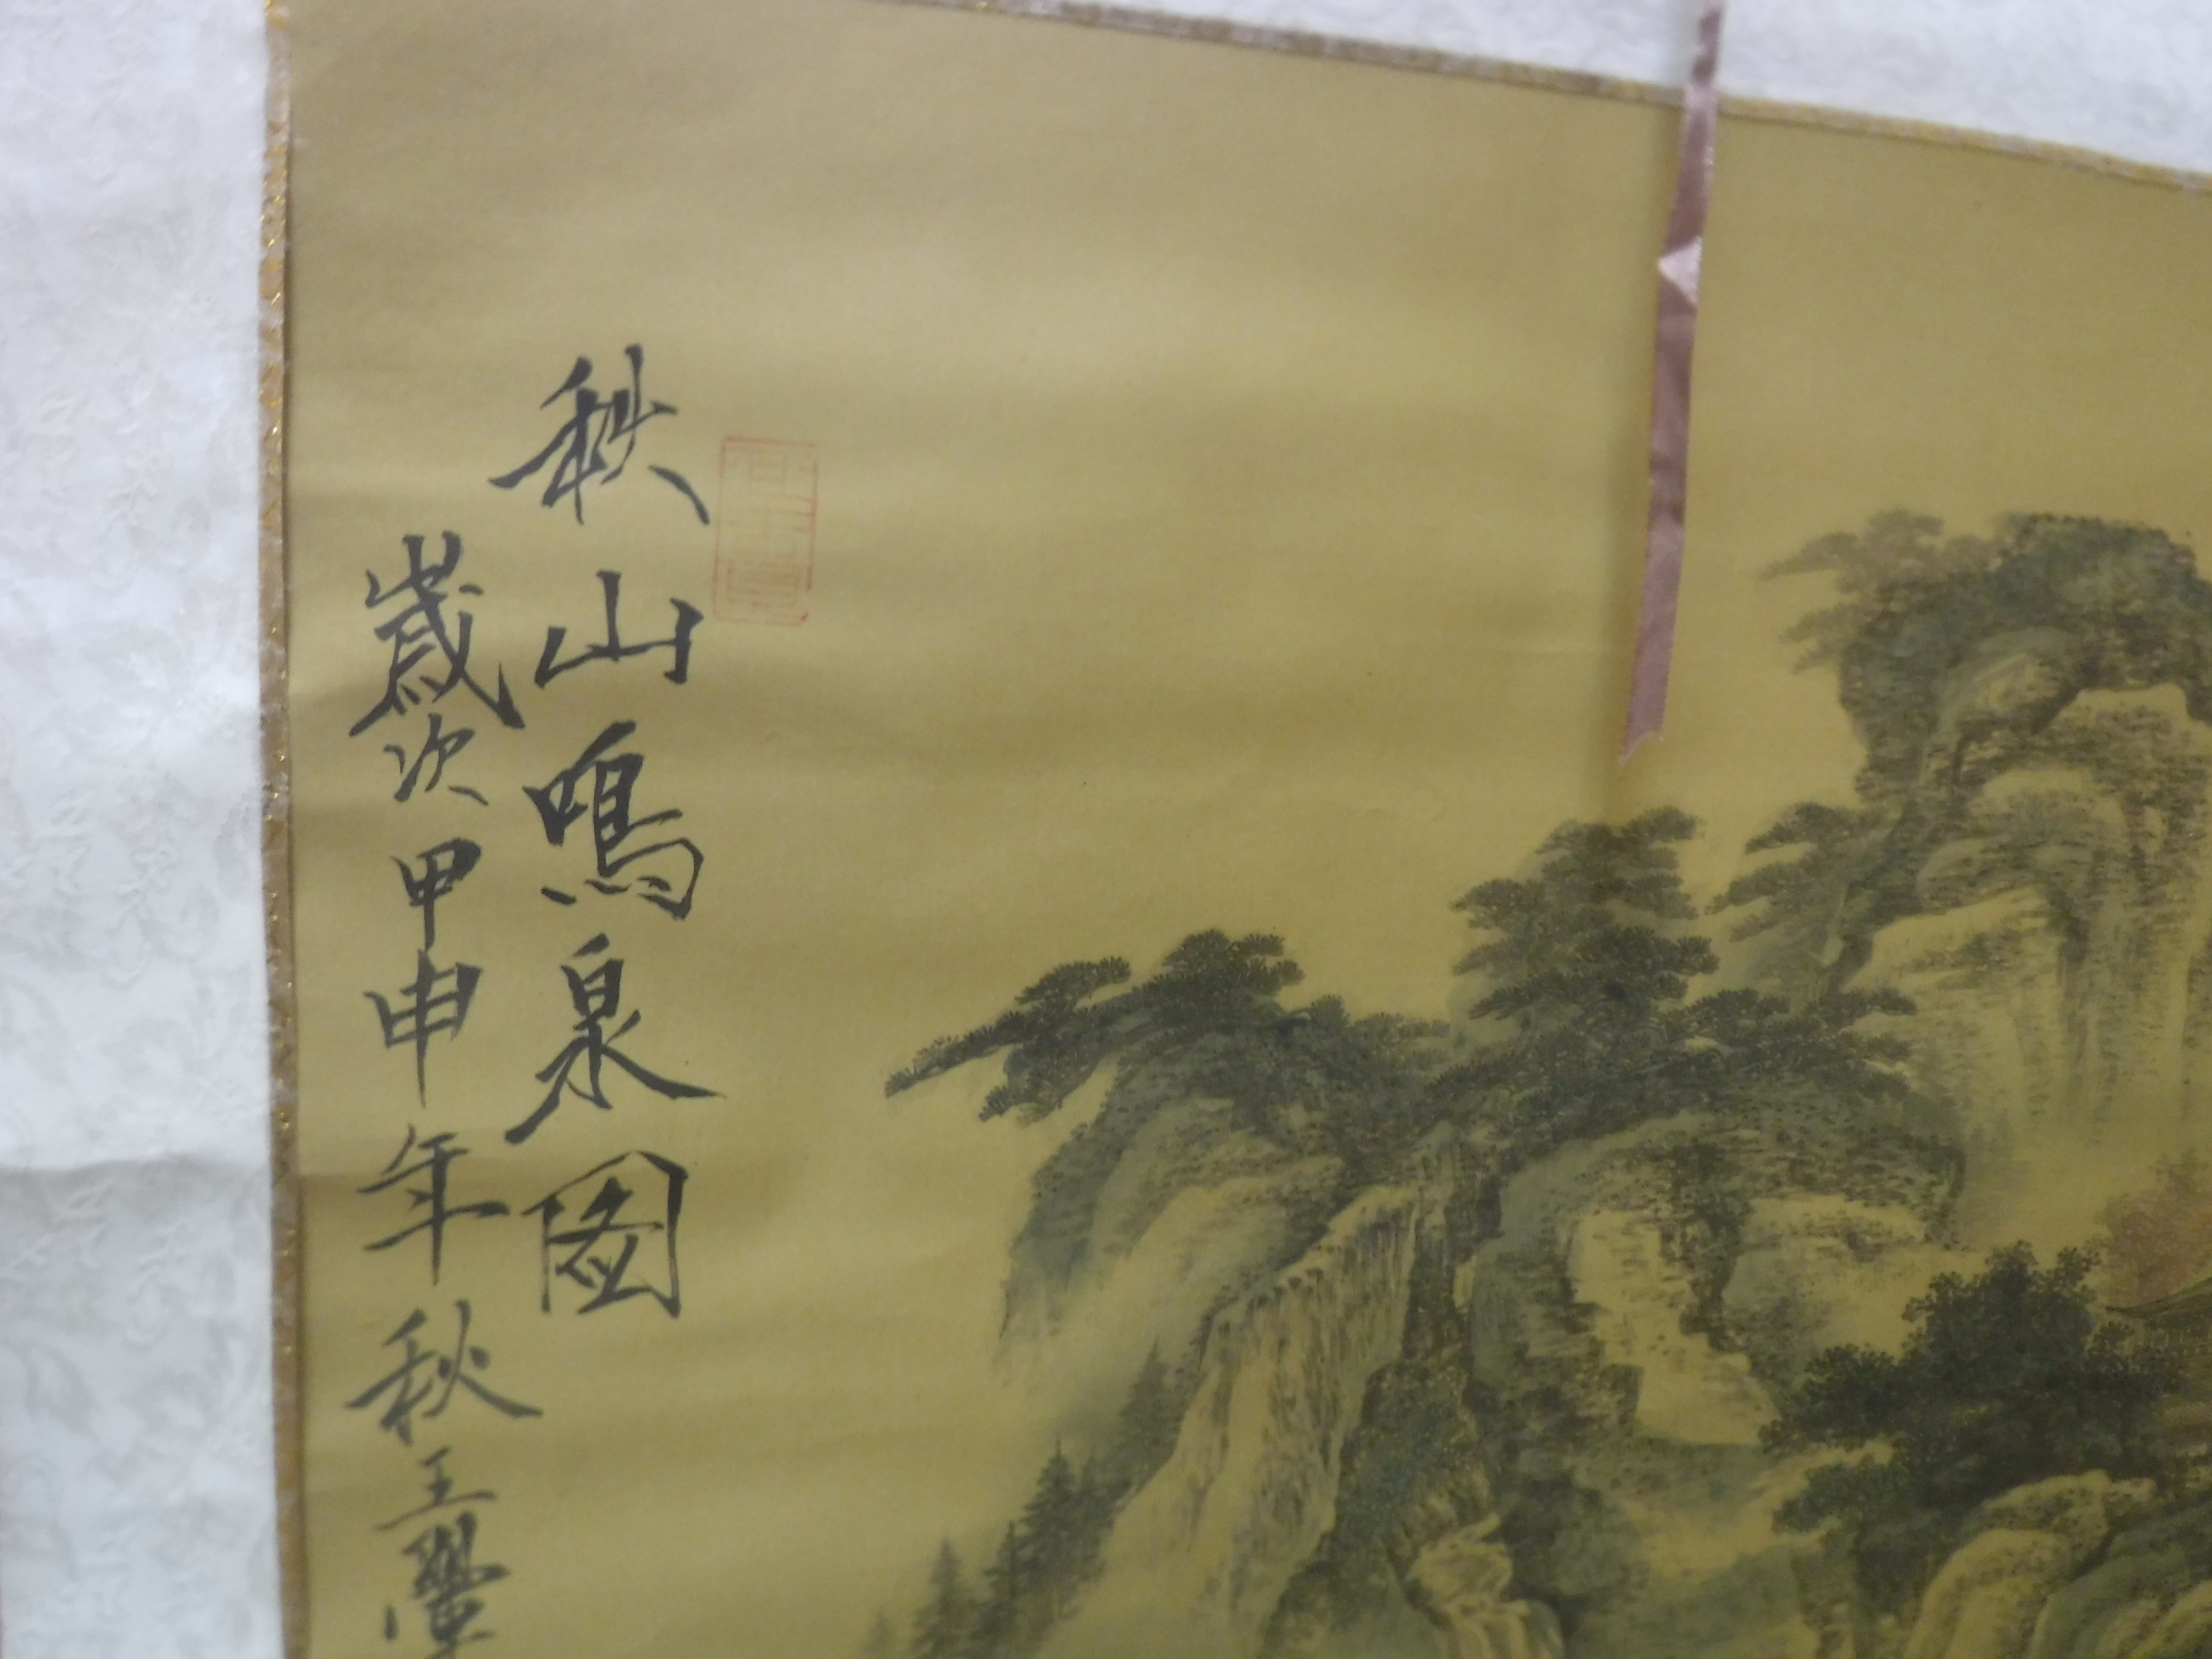 秋山鳴泉圖
歲次甲申年秋王學